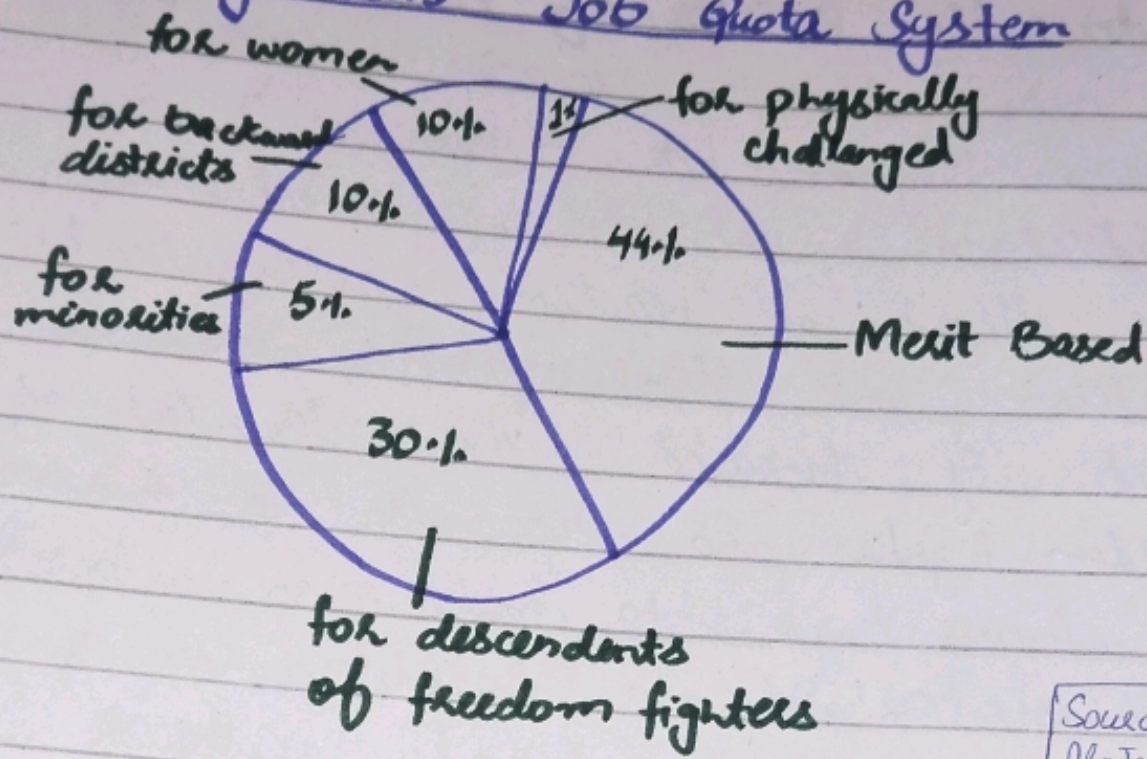 Job Quota System
for women
10%
1%
for physically
challanged
for backward
districts
10%
44%
for
minorities
5%
Merit Based
30%
for descendents
of freedom fighters